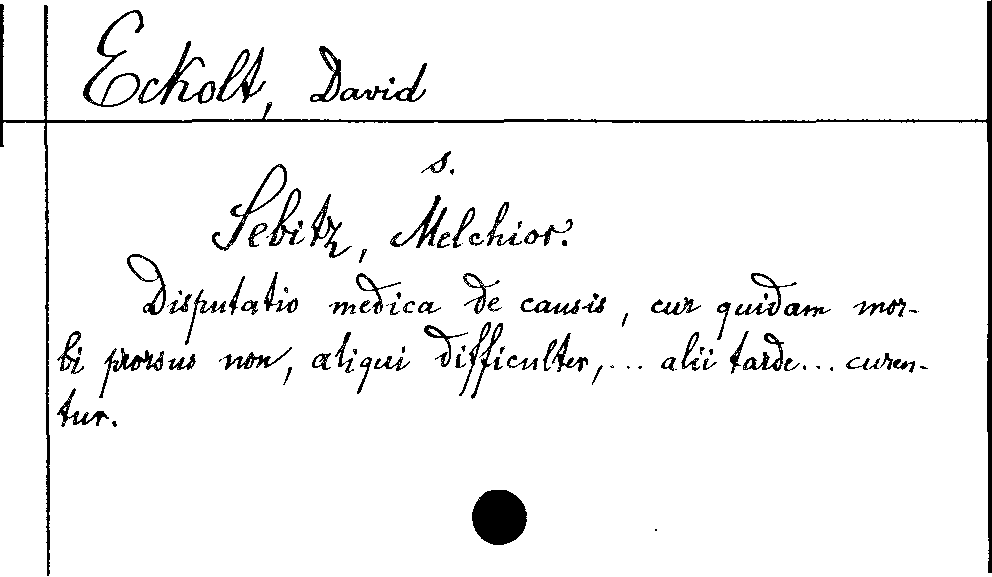 Eckolt, David
s.
Sebitz, Melchior.
Disputatio medica de causis, cur quidam mor-
bi prorsus non, aliqui difficulter, ... alii tarde ... curen-
tur.